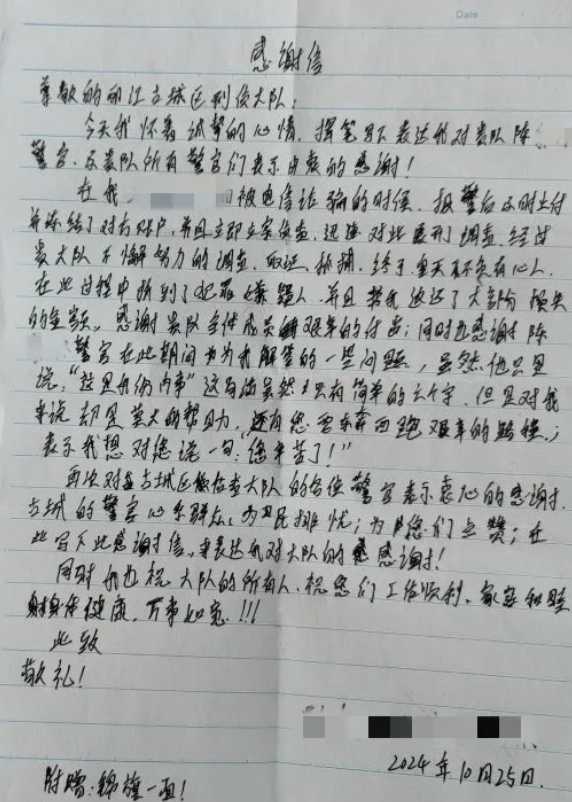 Date
感谢信
尊敬的丽江古城区刑侦大队：
今天我怀着诚挚的心情，提笔写下表达我对贵队陈
警官、及贵队所有警官们表示由衷的感谢！
在我 被电信诈骗的时候，报警后及时止付
并冻结了对方账户，并且立即立案侦查，迅速对此展开调查，经过
贵大队不懈努力的调查、取证、抓捕，终于皇天不负有心人
在此过程中抓到了犯罪嫌疑人，并且帮我返还了大部份损失
的金额。感谢贵队全体成员艰辛的付出；同时也感谢陈
警官在此期间为我解答的一些问题，虽然他只是
说，“这是我们内事”这句话虽然只有简单的六个字，但是对我
来说却是莫大的帮助，还有您们东奔西跑艰辛的路程；
表示我想对您说一句：“您辛苦了！”
再次对古城区侦查大队的各位警官表示衷心的感谢，
古城的警官心系群众，为民排忧；为您们点赞；在
此写下此感谢信，来表达我对大队的感谢！
同时我也祝大队的所有人，祝您们工作顺利，家庭和睦
身体健康，万事如意!!!
此致
敬礼！
2024年10月25日.
附赠：锦旗一面！